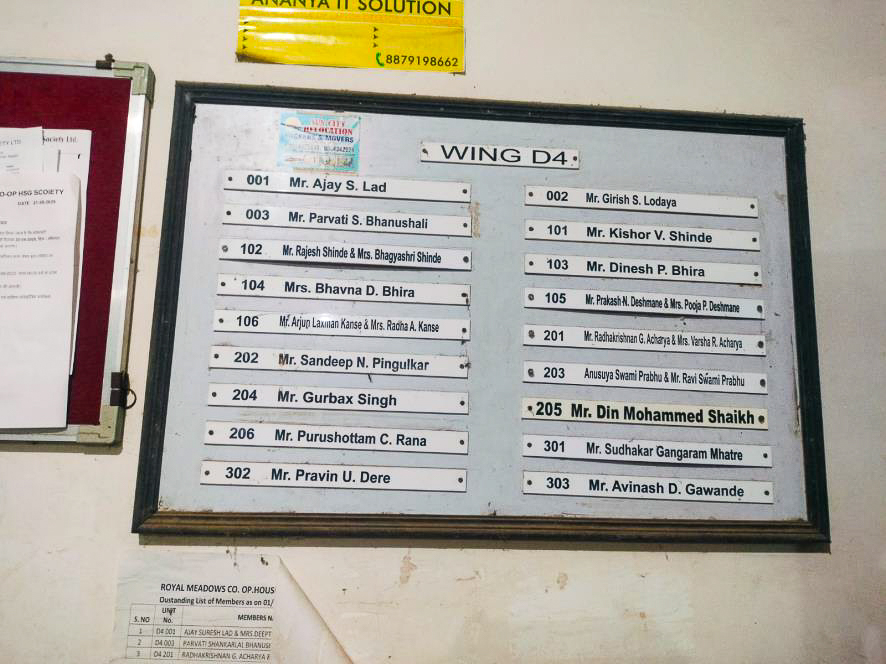 ANANYA IT SOLUTION
8879198662
SUN CITY
RELOCATION
PACKERS & MOVERS
WING D4
001 Mr. Ajay S. Lad
002 Mr. Girish S. Lodaya
003 Mr. Parvati S. Bhanushali
101 Mr. Kishor V. Shinde
102 Mr. Rajesh Shinde & Mrs. Bhagyashri Shinde
103 Mr. Dinesh P. Bhira
104 Mrs. Bhavna D. Bhira
105 Mr. Prakash N. Deshmane & Mrs. Pooja P. Deshmane
106 Mr. Arjun Laxman Kanse & Mrs. Radha A. Kanse
201 Mr. Radhakrishnan G. Acharya & Mrs. Varsha R. Acharya
202 Mr. Sandeep N. Pingulkar
203 Anusuya Swami Prabhu & Mr. Ravi Swami Prabhu
204 Mr. Gurbax Singh
205 Mr. Din Mohammed Shaikh
206 Mr. Purushottam C. Rana
301 Mr. Sudhakar Gangaram Mhatre
302 Mr. Pravin U. Dere
303 Mr. Avinash D. Gawande
ETY LTD.
Society Ltd.
O-OP HSG SCOIETY
DATE
ROYAL MEADOWS CO. OP.HOUS
Oustanding List of Members as on 01/
S. NO UNIT No. MEMBERS N
1 D4 001 AJAY SURESH LAD & MRS.DEEPT
2 D4 003 PARVATI SHANKARLAL BHANUS
3 D4 201 RADHAKRISHNAN G. ACHARYA &